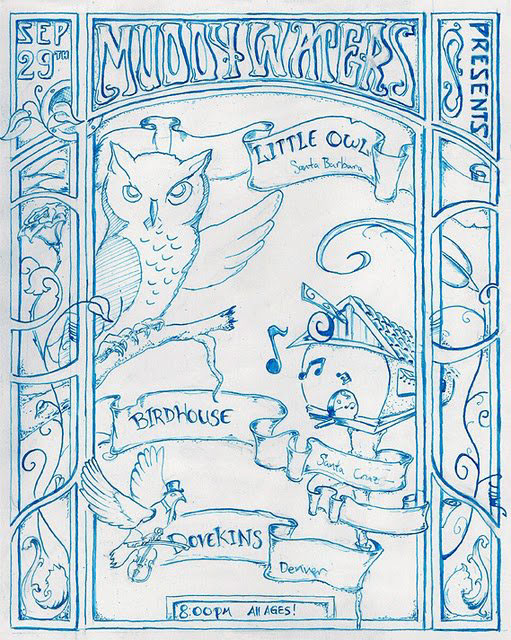 SEP
29TH
MUDDY WATERS
PRESENTS
LITTLE OWL
Santa Barbara
BIRDHOUSE
Santa Cruz
DOVEKINS
Denver
8:00PM All AGES!